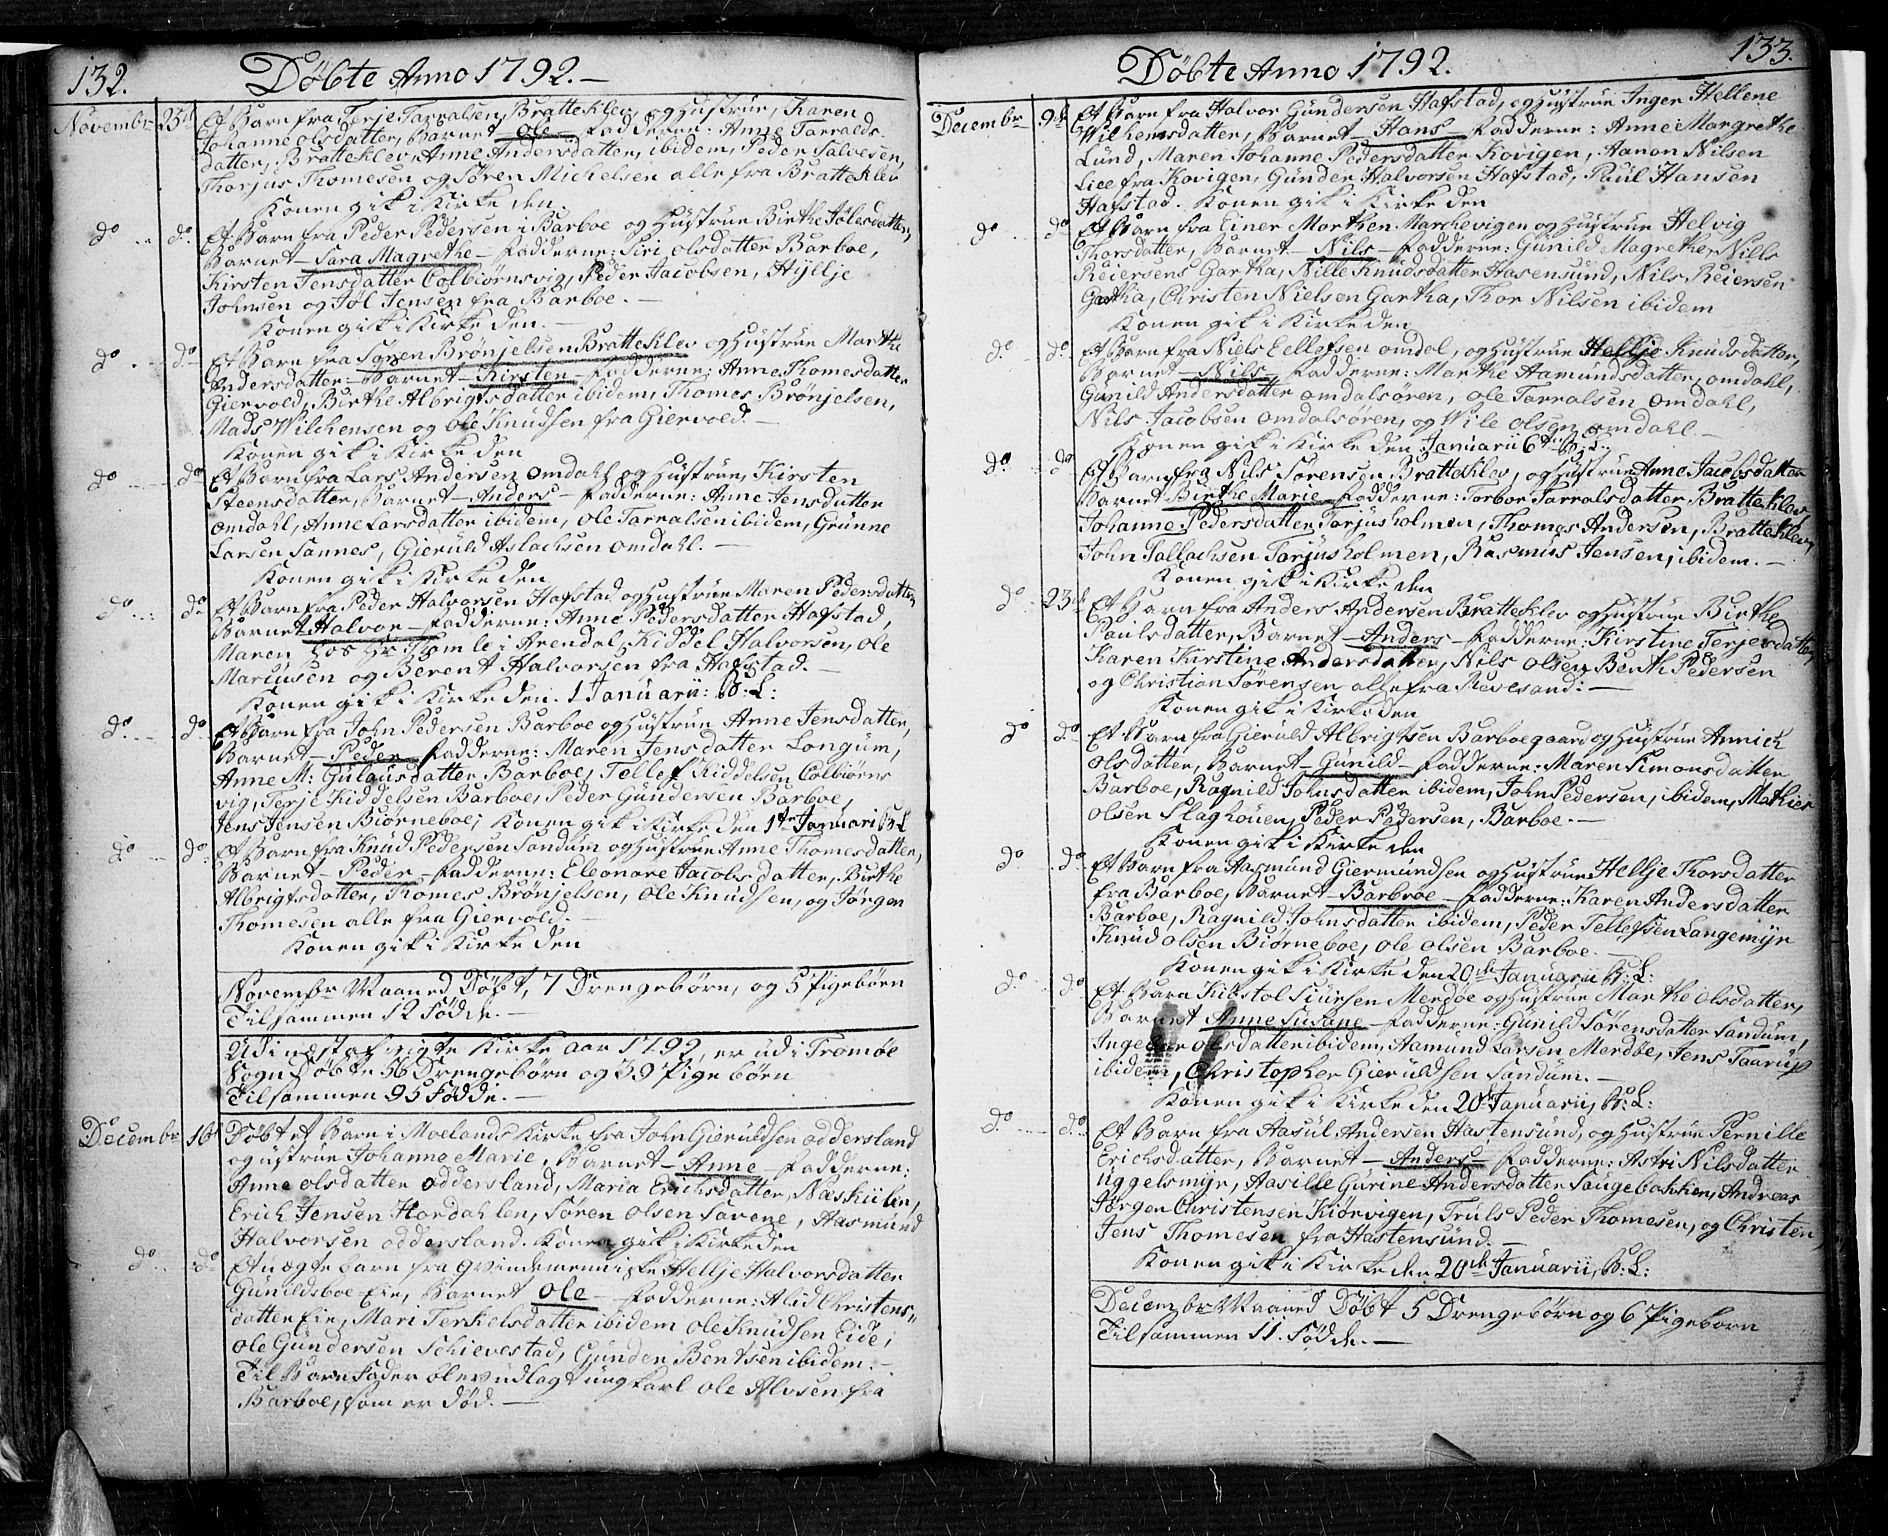 132. Døbte Anno 1792.—
Novembr 25de Et Barn fra Terje Tarralsen, Bratteklev, og Hustrue, Karen
Johanne olsdatter, Barnet — Ole — Fadderne: Anne Tarralds-
datter, Bratteklev, Anne Andersdatter, ibidem, Peder Salvesen,
Thorjus Thomesen og Søren Michelsen alle fra Bratteklev
Konen gik i Kirke den.
do do Et Barn fra Peder Pedersen i Barboe og Hustrue Birthe Jølesdatter,
Barnet — Sara Magrethe — Fadderne: Siri olsdatter Barboe,
Kirsten Jensdatter Colbiørnsvig, Peder Jacobsen, Hyllje
Johnsen og Jøl Jensen fra Barboe. —
Konen gik i Kirke den. —
do do Et Barn fra Søren Brønjelsen Bratteklev og Hustrue Marthe
Andersdatter — Barnet — Kirsten — Fadderne: Anne Thomesdatter
Giervold, Birthe Albrigtsdatter ibidem, Thomes Brønjelsen,
Mads Wilchensen og ole Knudsen fra Giervold. —
Konen gik i Kirke den
do do Et Barn fra Lars Andersen omdahl og Hustrue, Kirsten
Steensdatter, Barnet — Anders — Fadderne: Anne Jensdatter
omdahl, Anne Larsdatter ibidem, Ole Tarralsen ibidem, Grunne
Larsen Sannes, Gieruld Aslachsen omdahl. —
Konen gik i Kirke den
do do Et Barn fra Peder Halvorsen Hafstad og Hustrue Maren Pedersdatter
Barnet Halvor — Fadderne: Anne Pedersdatter Hafstad,
Maren hos Hr Thomle i Arendal, Kiddel Halvorsen, ole
Mariusen og Berent Halvorsen fra Hafstad. —
Konen gik i Kirke den. 1 Januarii: B: L:
do do Et Barn fra John Pedersen Barboe og Hustrue Anne Jensdatter,
Barnet — Peder — Fadderne: Maren Jensdatter Longum,
Anne M: Gulausdatter Barboe, Tellef Kiddelsen Colbiørns
vig, Terje Kiddelsen Barboe, Peder Gundersen Barboe,
Jens Jensen Biørneboe; Konen gik i Kirke den 1te Januari B: L
do do Et Barn fra Knud Pedersen Sandum og Hustrue Anne Thomesdatter,
Barnet — Peder — Fadderne: Eleonare Jacobsdatter, Birthe
Albrigtsdatter, Thomes Brønjelsen, Ole Knudsen, og Jørgen
Thomesen alle fra Giervold. —
Konen gik i Kirke den
Novembr Maaned Døbt, 7 Drengebørn, og 5 Pigebørn
Tilsammen 12 Fødde. —
Udi næstafvigte Kirke aar 1792, er udi Tromøe
Sogn Døbte 56 Drengebørn og 39 Pigebørn
Tilsammen 95 Fødde. —
Decembr Døbt et Barn i Moelands Kirke fra John Gieruldsen oddersland
og ustrue Johanne Marie, Barnet — Anne — Fadderne:
Anne olsdatter oddersland, Maria Erichsdatter, Næskiilen,
Erich Jensen Hordahlen, Søren olsen Savene, Aasmund
Halvorsen oddersland. Konen gik i Kirke den
do do Et uægte barn fra Qvindemennische Hellje Halvorsdatter
Gunildsboe Eie, Barnet Ole — Fadderne: Alid Christens-
datter Eie, Mari Terkelsdatter ibidem ole Knudsen Eide,
Ole Gundersen Schievestad, Gunder Bentsen ibidem. —
Til Barnefader blev udlagt ungkarl Ole Alvsen fra
Barboe, som er død. —
Døbte Anno 1792. 133.
Decembr 9de Et Barn fra Halvor Gundersen Hafstad, og Hustrue Inger Hellene
Wilhemsdatter, Barnet — Hans — Fadderne: Anne Margrethe
Lund, Maren Johanne Pedersdatter Kovigen, Aanon Nilsen
Liee fra Kovigen, Gunder Halvorsen Hafstad, Paul Hansen
Hafstad. Konen gik i Kirke den
do do Et Barn fra Einer Morthen Marchevigen og Hustrue Helvig
Thorsdatter, Barnet — Nils — Fadderne: Gunild Magrethe, Nills
Reiersens Gartha, Nille Knudsdatter Hasensund, Nils Reiersen
Gartha, Christen Nielsen Gartha, Thor Nilsen ibidem
Konen gik i Kirke den
do do Et Barn fra Niels Eellefsen omdal, og Hustrue Hellje Knudsdatter,
Barnet — Nils — Fadderne: Marthe Aamundsdatter, omdahl,
Gunild Andersdatter omdalsøren, Ole Tarralsen omdahl,
Nils Jacobsen omdalsøren, og Wile olsen omdahl —
Konen gik i Kirke den Januarii 6te B: L:
do do Et Barn fra Nils Sørensen Bratteklev, og Hustrue Anne Jacobsdatter
Barnet Birthe Marie — Fadderne: Torbor Tarralsdatter Bratteklev
Johanne Pedersdatter Torjusholmen, Thomes Andersen, Bratteklev,
John Tallachsen Torjusholmen, Rasmus Jensen, ibidem. —
Konen gik i Kirke den
do 23de Et Barn fra Anders Andersen Bratteklev og Hustrue Birthe
Paulsdatter, Barnet — Anders — Fadderne: Kirstine Terjesdatter,
Karen Kirstine Andersdatter, Nils Olsen, Benth Pedersen
og Christian Sørensen alle fra Revesand. —
Konen gik i Kirke den
do do Et Barn fra Gieruld Albrigtsen Barboegaard og Hustrue Annich
olsdatter, Barnet — Gunild — Fadderne: Maren Simonsdatter
Barboe, Ragnild Johnsdatter ibidem, John Pedersen, ibidem, Mathies
olsen Flaghouen, Peder Pedersen, Barboe. —
Konen gik i Kirke den
do do Et Barn fra Aasmund Giermundsen og Hustrue Hellje Thorsdatter
fra Barboe, Barnet — Barbroe — Fadderne: Karen Andersdatter
Barboe, Ragnild Johnsdatter ibidem, Peder Tellefsen Langemyr
Knud olsen Biørneboe, ole olsen Barboe
Konen gik i Kirke den 20de Januarii B: L:
do do Et Barn Kiøstol Siursen Merdøe og Hustrue Marthe olsdatter,
Barnet Anne Susane — Fadderne: Gunild Sørensdatter Sandum,
Ingebor olsdatter ibidem, Aamund Larsen Merdøe, Jens Taarup
ibidem, Christopher Gieruldsen Sandum. —
Konen gik i Kirke den 20de Januarii, B: L:
do do Et Barn fra Aasul Andersen Hastensund, og Hustrue Pernille
Erichsdatter, Barnet — Anders — Fadderne: Astri Nilsdatter
Uggelsmyr, Aasille Gurine Andersdatter Saugebakken, Andreas
Jørgen Christensen Kiørvigen, Truls Peder Thomesen, og Christen
Jens Thomesen fra Hastensund. —
Konen gik i Kirke den 20de Januarii, B: L:
Decembr Maaned Døbt 5 Drengebørn og 6 Pigeborn
Tilsammen 11. Fødde. —